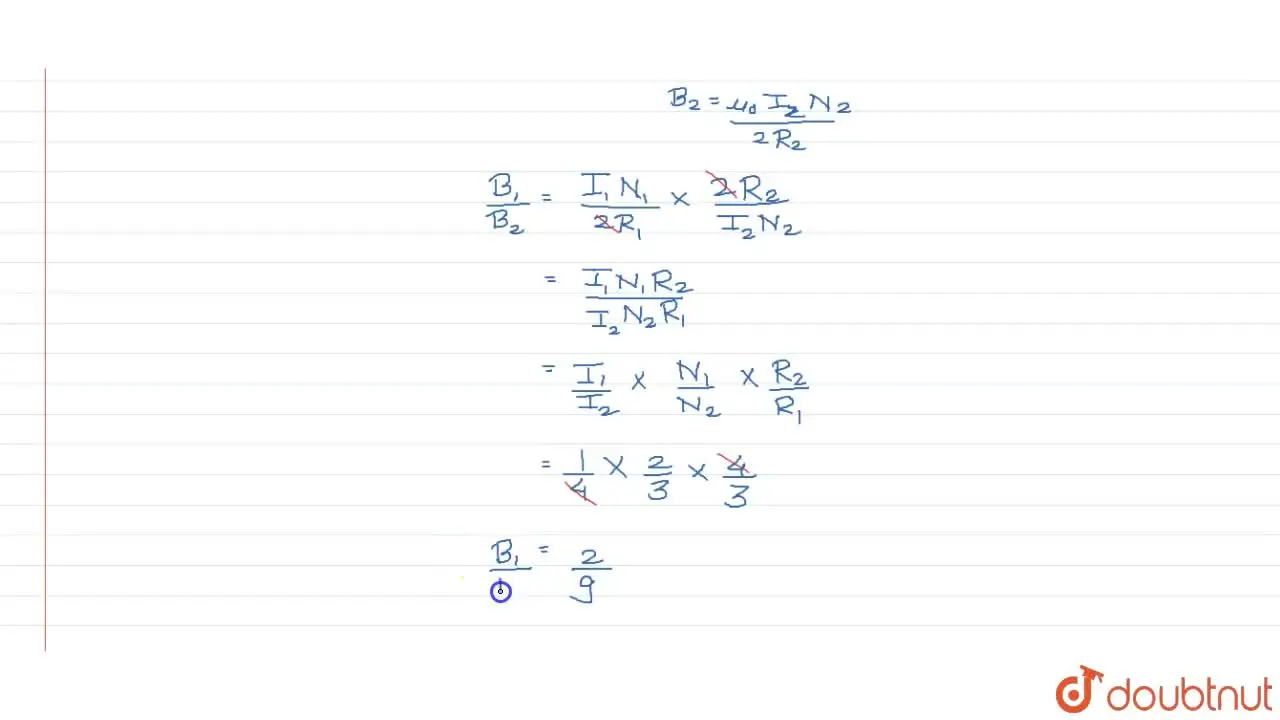 B₂ = μ₀ I₂ N₂ / 2R₂
B₁/B₂ = I₁ N₁ / 2R₁ × 2R₂ / I₂ N₂
= I₁ N₁ R₂ / I₂ N₂ R₁
= I₁/I₂ × N₁/N₂ × R₂/R₁
= 1/4 × 2/3 × 4/3
B₁ = 2/9
doubtnut